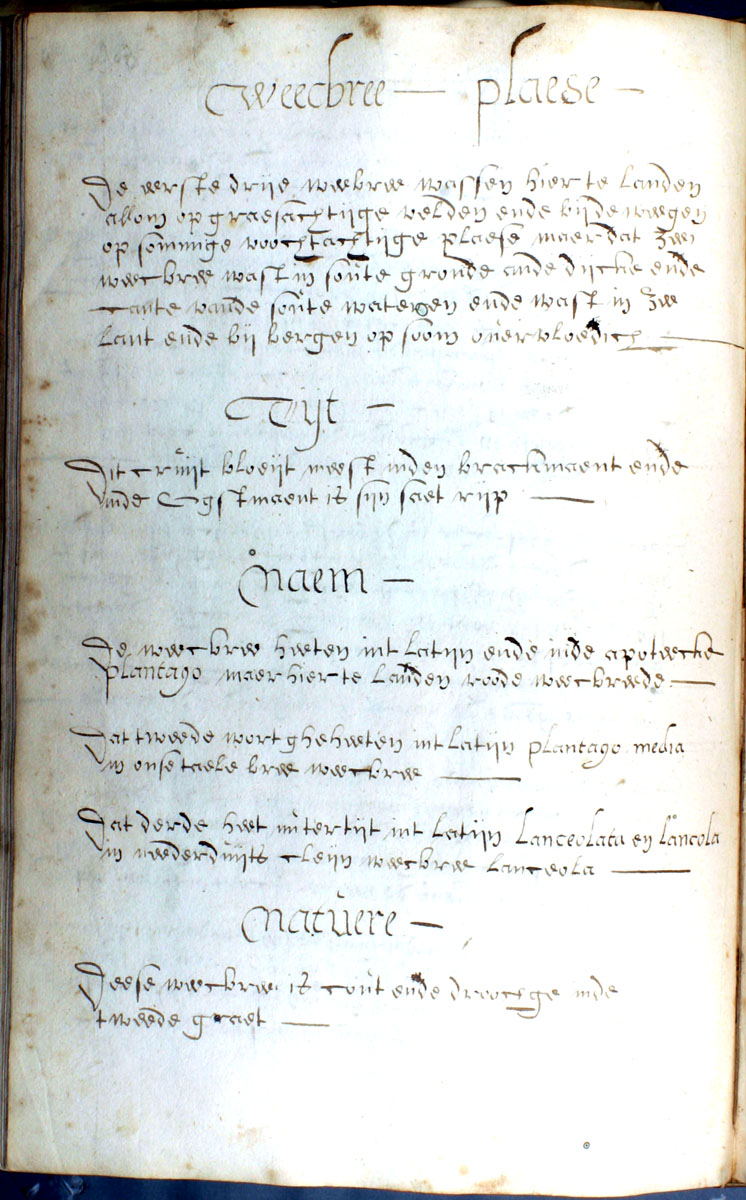 Weecbree — plaese —
De eerste drije weebree wassen hier te landen
allom op graesachtijge velden ende bijde weegen
op sommige voochtachtijge plaese maer dat zwi
weecbree wast in soute gronde ande dijcke ende
cante vande soute wateren ende wast in zee
lant ende bij bergen op soom overvloedich —
Tijt —
Dit cruijt bloeijt meest inden brackmaent ende
inde Ogstmaent is sijn saet rijp —
Naem —
De weecbree heeten int Latijn ende inde apoteecke
Plantago maer hier te landen roode weecbreede —
Dat tweede wort gheheeten int Latijn plantago media
in onse taele bree weecbree —
Dat derde heet in tertijt int Latijn Lanceolata en lancola
in neederduijts cleijn weecbree lanceola —
Natuere —
Deese weecbree is cout ende droochge inde
tweede graet —